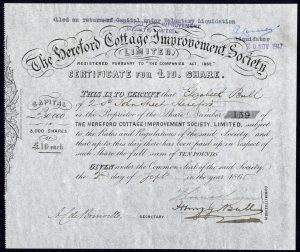 Called on return of Capital under Voluntary Liquidation
Liquidator
20 NOV 1947
The Hereford Cottage Improvement Society,
(LIMITED.)
REGISTERED PURSUANT TO "THE COMPANIES ACT, 1862."
CERTIFICATE FOR £10. SHARE.
CAPITAL
IN
SHARES
OF
£10 each
THIS IS TO CERTIFY that Elizabeth Bull
of 2 St. John Street Hereford
is the Proprietor of the Share Number 159 of
THE HEREFORD COTTAGE IMPROVEMENT SOCIETY, LIMITED, subject
to the Rules and Regulations of the said Society, and
that up to this day there has been paid up in respect of
such Share the full sum of TEN POUNDS.
GIVEN under the Common Seal of the said Society, the
day of Sept. in the year 1865
SECRETARY.